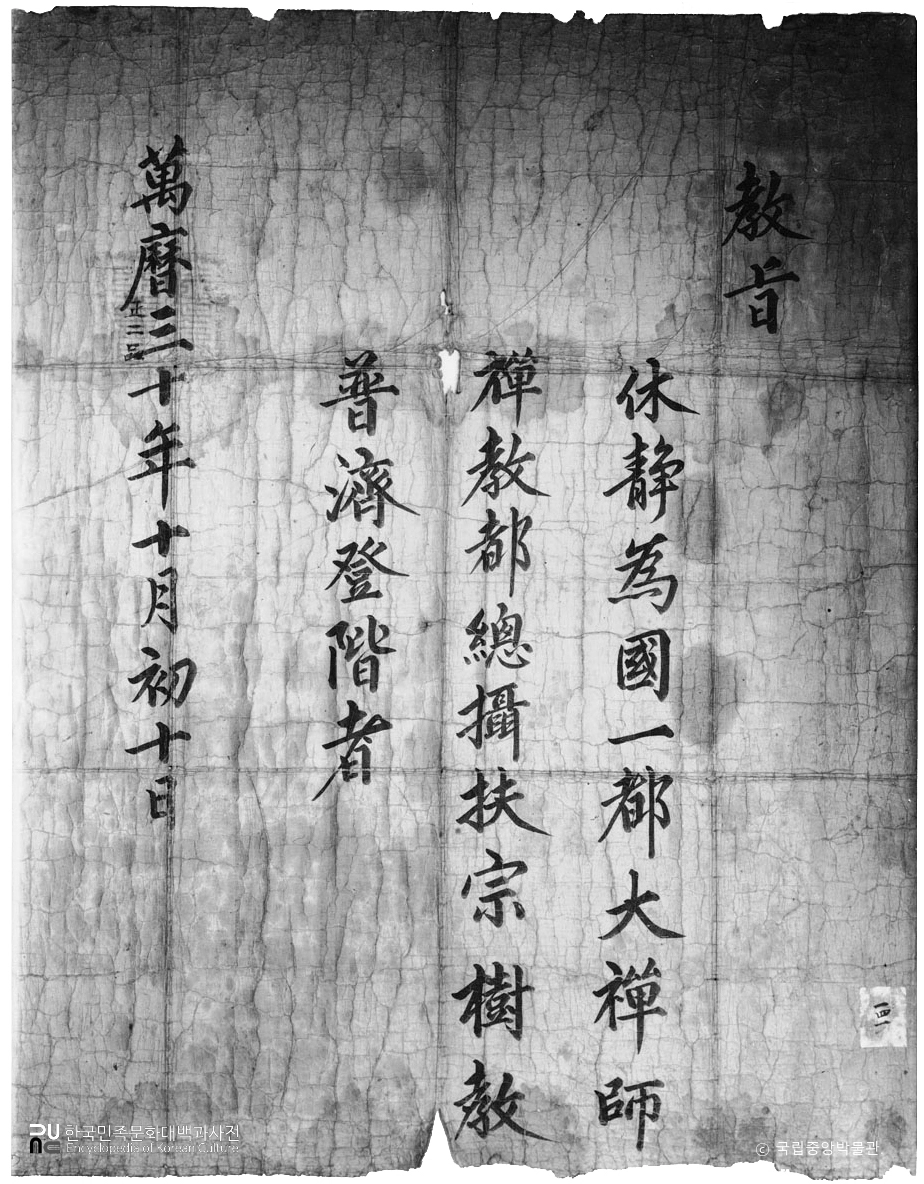 教旨
休静為國一都大禪師
禪教都總攝扶宗樹教
普濟登階者
萬曆三十年十月初十日
正二品
한국민족문화대백과사전
Encyclopedia of Korean Culture
ⓒ 국립중앙박물관